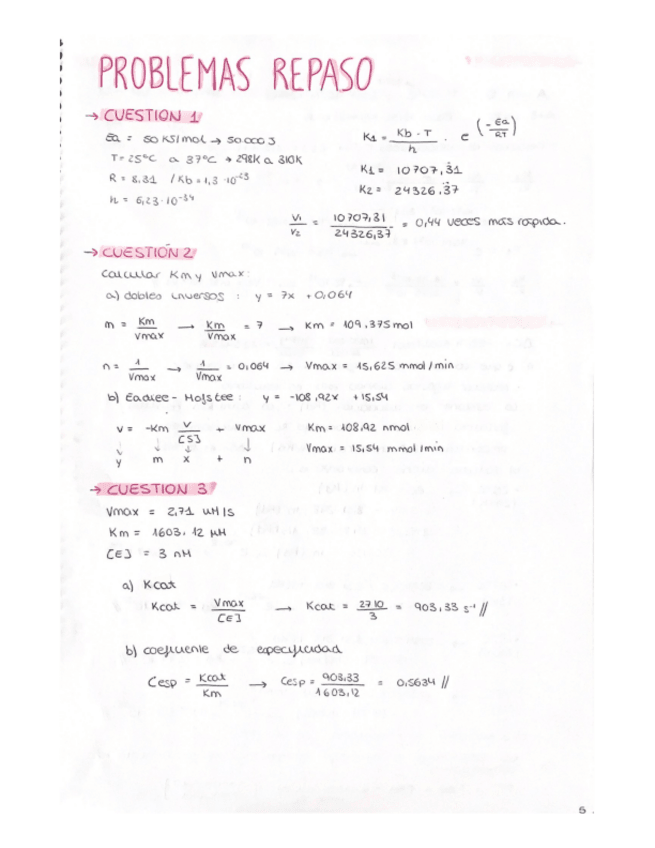 PROBLEMAS REPASO
→ CUESTION 1
Ea = 50 KJ/mol → 50000 J
T = 25°C a 37°C → 298K a 310K
R = 8,31 / Kb = 1,3 · 10⁻²³
h = 6,23 · 10⁻³⁴
K1 = Kb · T / h · e ^(-Ea/RT)
K1 = 10707,31
K2 = 24326,37
V1/V2 = 10707,31 / 24326,37 = 0,44 veces más rápida.
→ CUESTIÓN 2
Calcular Km y Vmax:
a) dobles inversos : y = 7x + 0,064
m = Km/Vmax → Km/Vmax = 7 → Km = 109,375 mol
n = 1/Vmax → 1/Vmax = 0,064 → Vmax = 15,625 mmol/min
b) Eadiee - Hofstee : y = -108,92x + 15,54
v = -Km V/[S] + Vmax Km = 108,92 nmol
↓ ↓ ↓ ↓ Vmax = 15,54 mmol/min
y m x + n
→ CUESTION 3
Vmax = 2,71 uM/s
Km = 1603,12 µM
[E] = 3 nM
a) Kcat
Kcat = Vmax/[E] → Kcat = 2710/3 = 903,33 s⁻¹ //
b) coeficiente de especificidad
Cesp = Kcat/Km → Cesp = 903,33/1603,12 = 0,5634 //
5